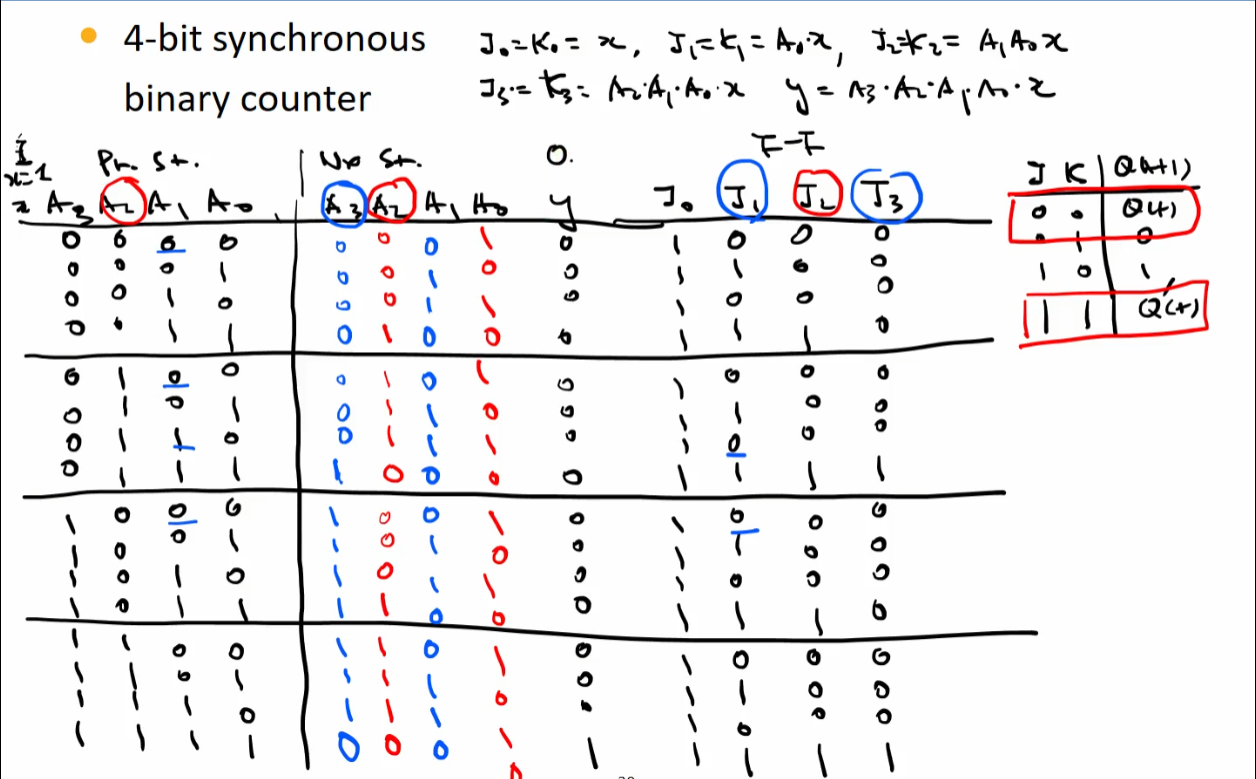 • 4-bit synchronous J₀=K₀= x, J₁=K₁= A₀·x, J₂=K₂= A₁A₀x
binary counter J₃=K₃= A₂·A₁·A₀·x y = A₃·A₂·A₁·A₀·x
I Pr. St. Nx St. O. F-F
x=1
x A₃ A₂ A₁ A₀ A₃ A₂ A₁ A₀ y J₀ J₁ J₂ J₃
0 0 0 0 0 0 0 1 0 1 0 0 0
0 0 0 1 0 0 1 0 0 1 1 0 0
0 0 1 0 0 0 1 1 0 1 0 0 0
0 0 1 1 0 1 0 0 0 1 1 1 0
0 1 0 0 0 1 0 1 0 1 0 0 0
0 1 0 1 0 1 1 0 0 1 1 0 0
0 1 1 0 0 1 1 1 0 1 0 0 0
0 1 1 1 1 0 0 0 0 1 1 1 1
1 0 0 0 1 0 0 1 0 1 0 0 0
1 0 0 1 1 0 1 0 0 1 1 0 0
1 0 1 0 1 0 1 1 0 1 0 0 0
1 0 1 1 1 1 0 0 0 1 1 1 0
1 1 0 0 1 1 0 1 0 1 0 0 0
1 1 0 1 1 1 1 0 0 1 1 0 0
1 1 1 0 1 1 1 1 0 1 0 0 0
1 1 1 1 0 0 0 0 1 1 1 1 1
J K Q(t+1)
0 0 Q(t)
0 1 0
1 0 1
1 1 Q'(t)